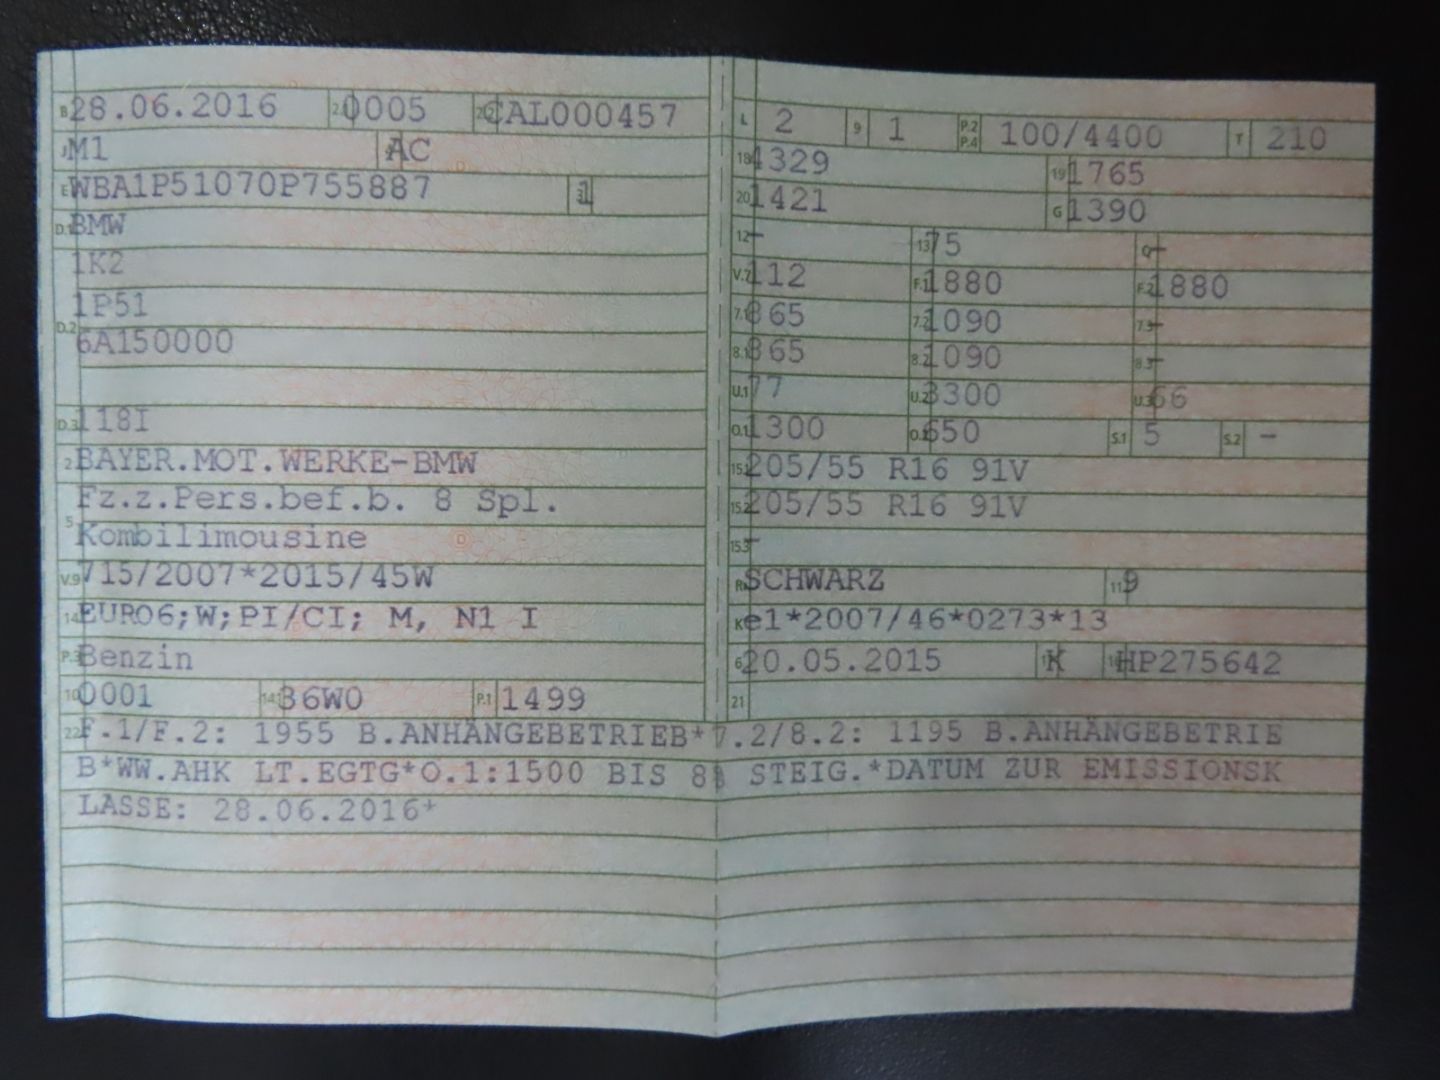 B 28.06.2016 2.1 0005 2.2 CAL000457
J M1 4 AC
E WBA1P51070P755887 3 1
D.1 BMW
1K2
1P51
D.2 6A150000
D.3 118I
2 BAYER.MOT.WERKE-BMW
Fz.z.Pers.bef.b. 8 Spl.
5 Kombilimousine
V.9 715/2007*2015/45W
14 EURO6;W;PI/CI; M, N1 I
P.3 Benzin
10 0001 14.1 36W0 P.1 1499
L 2 9 1 P.2 P.4 100/4400 T 210
18 4329 19 1765
20 1421 G 1390
12 - 13 75 Q -
V.7 112 F.1 1880 F.2 1880
7.1 865 7.2 1090 7.3 -
8.1 865 8.2 1090 8.3 -
U.1 77 U.2 3300 U.3 66
O.1 1300 O.2 650 S.1 5 S.2 -
15.1 205/55 R16 91V
15.2 205/55 R16 91V
15.3 -
R SCHWARZ 11 9
K e1*2007/46*0273*13
6 20.05.2015 17 K 16 HP275642
21
22 F.1/F.2: 1955 B.ANHÄNGEBETRIEB*7.2/8.2: 1195 B.ANHÄNGEBETRIE
B*WW.AHK LT.EGTG*O.1:1500 BIS 8% STEIG.*DATUM ZUR EMISSIONSK
LASSE: 28.06.2016*